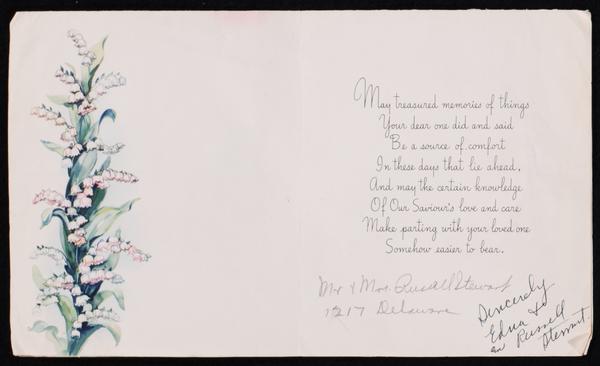 May treasured memories of things
Your dear one did and said
Be a source of comfort
In these days that lie ahead,
And may the certain knowledge
Of Our Saviour's love and care
Make parting with your loved one
Somehow easier to bear.
Mr & Mrs. Russell Stewart
1217 Delaware
Sincerely
Edna &
Russell
Stewart